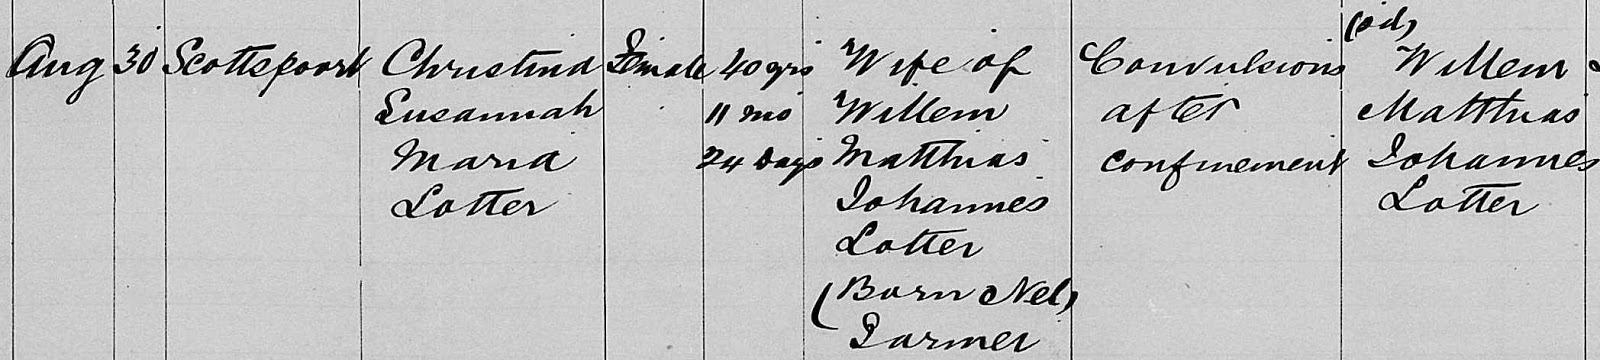 Aug
30
Scottspoort
Christina
Susannah
Maria
Lotter
Female
40 yrs
11 mo
24 Days
Wife of
Willem
Matthias
Johannes
Lotter
(Born Nel)
Farmer
Convulsions
after
confinement
(sd)
Willem
Matthias
Johannes
Lotter